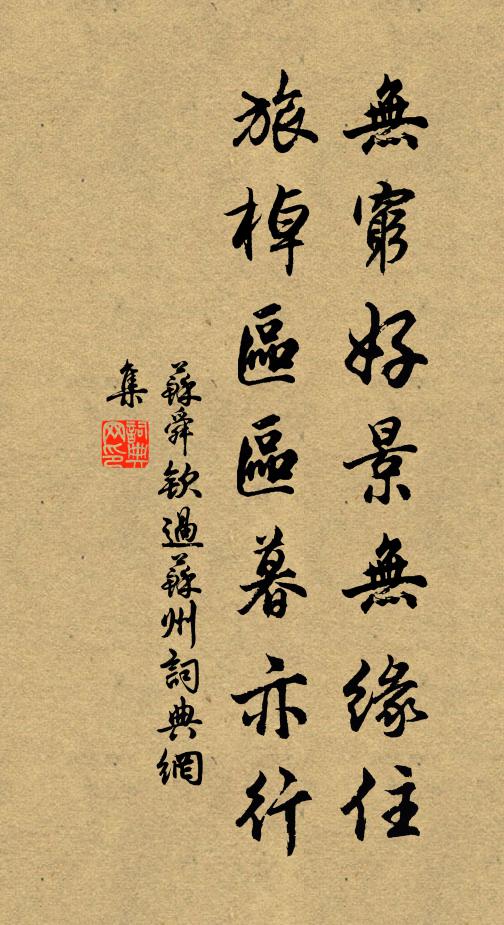 無窮好景無緣住
旅棹區區暮亦行
蘇舜欽過蘇州詞典網
集
詞典
网印